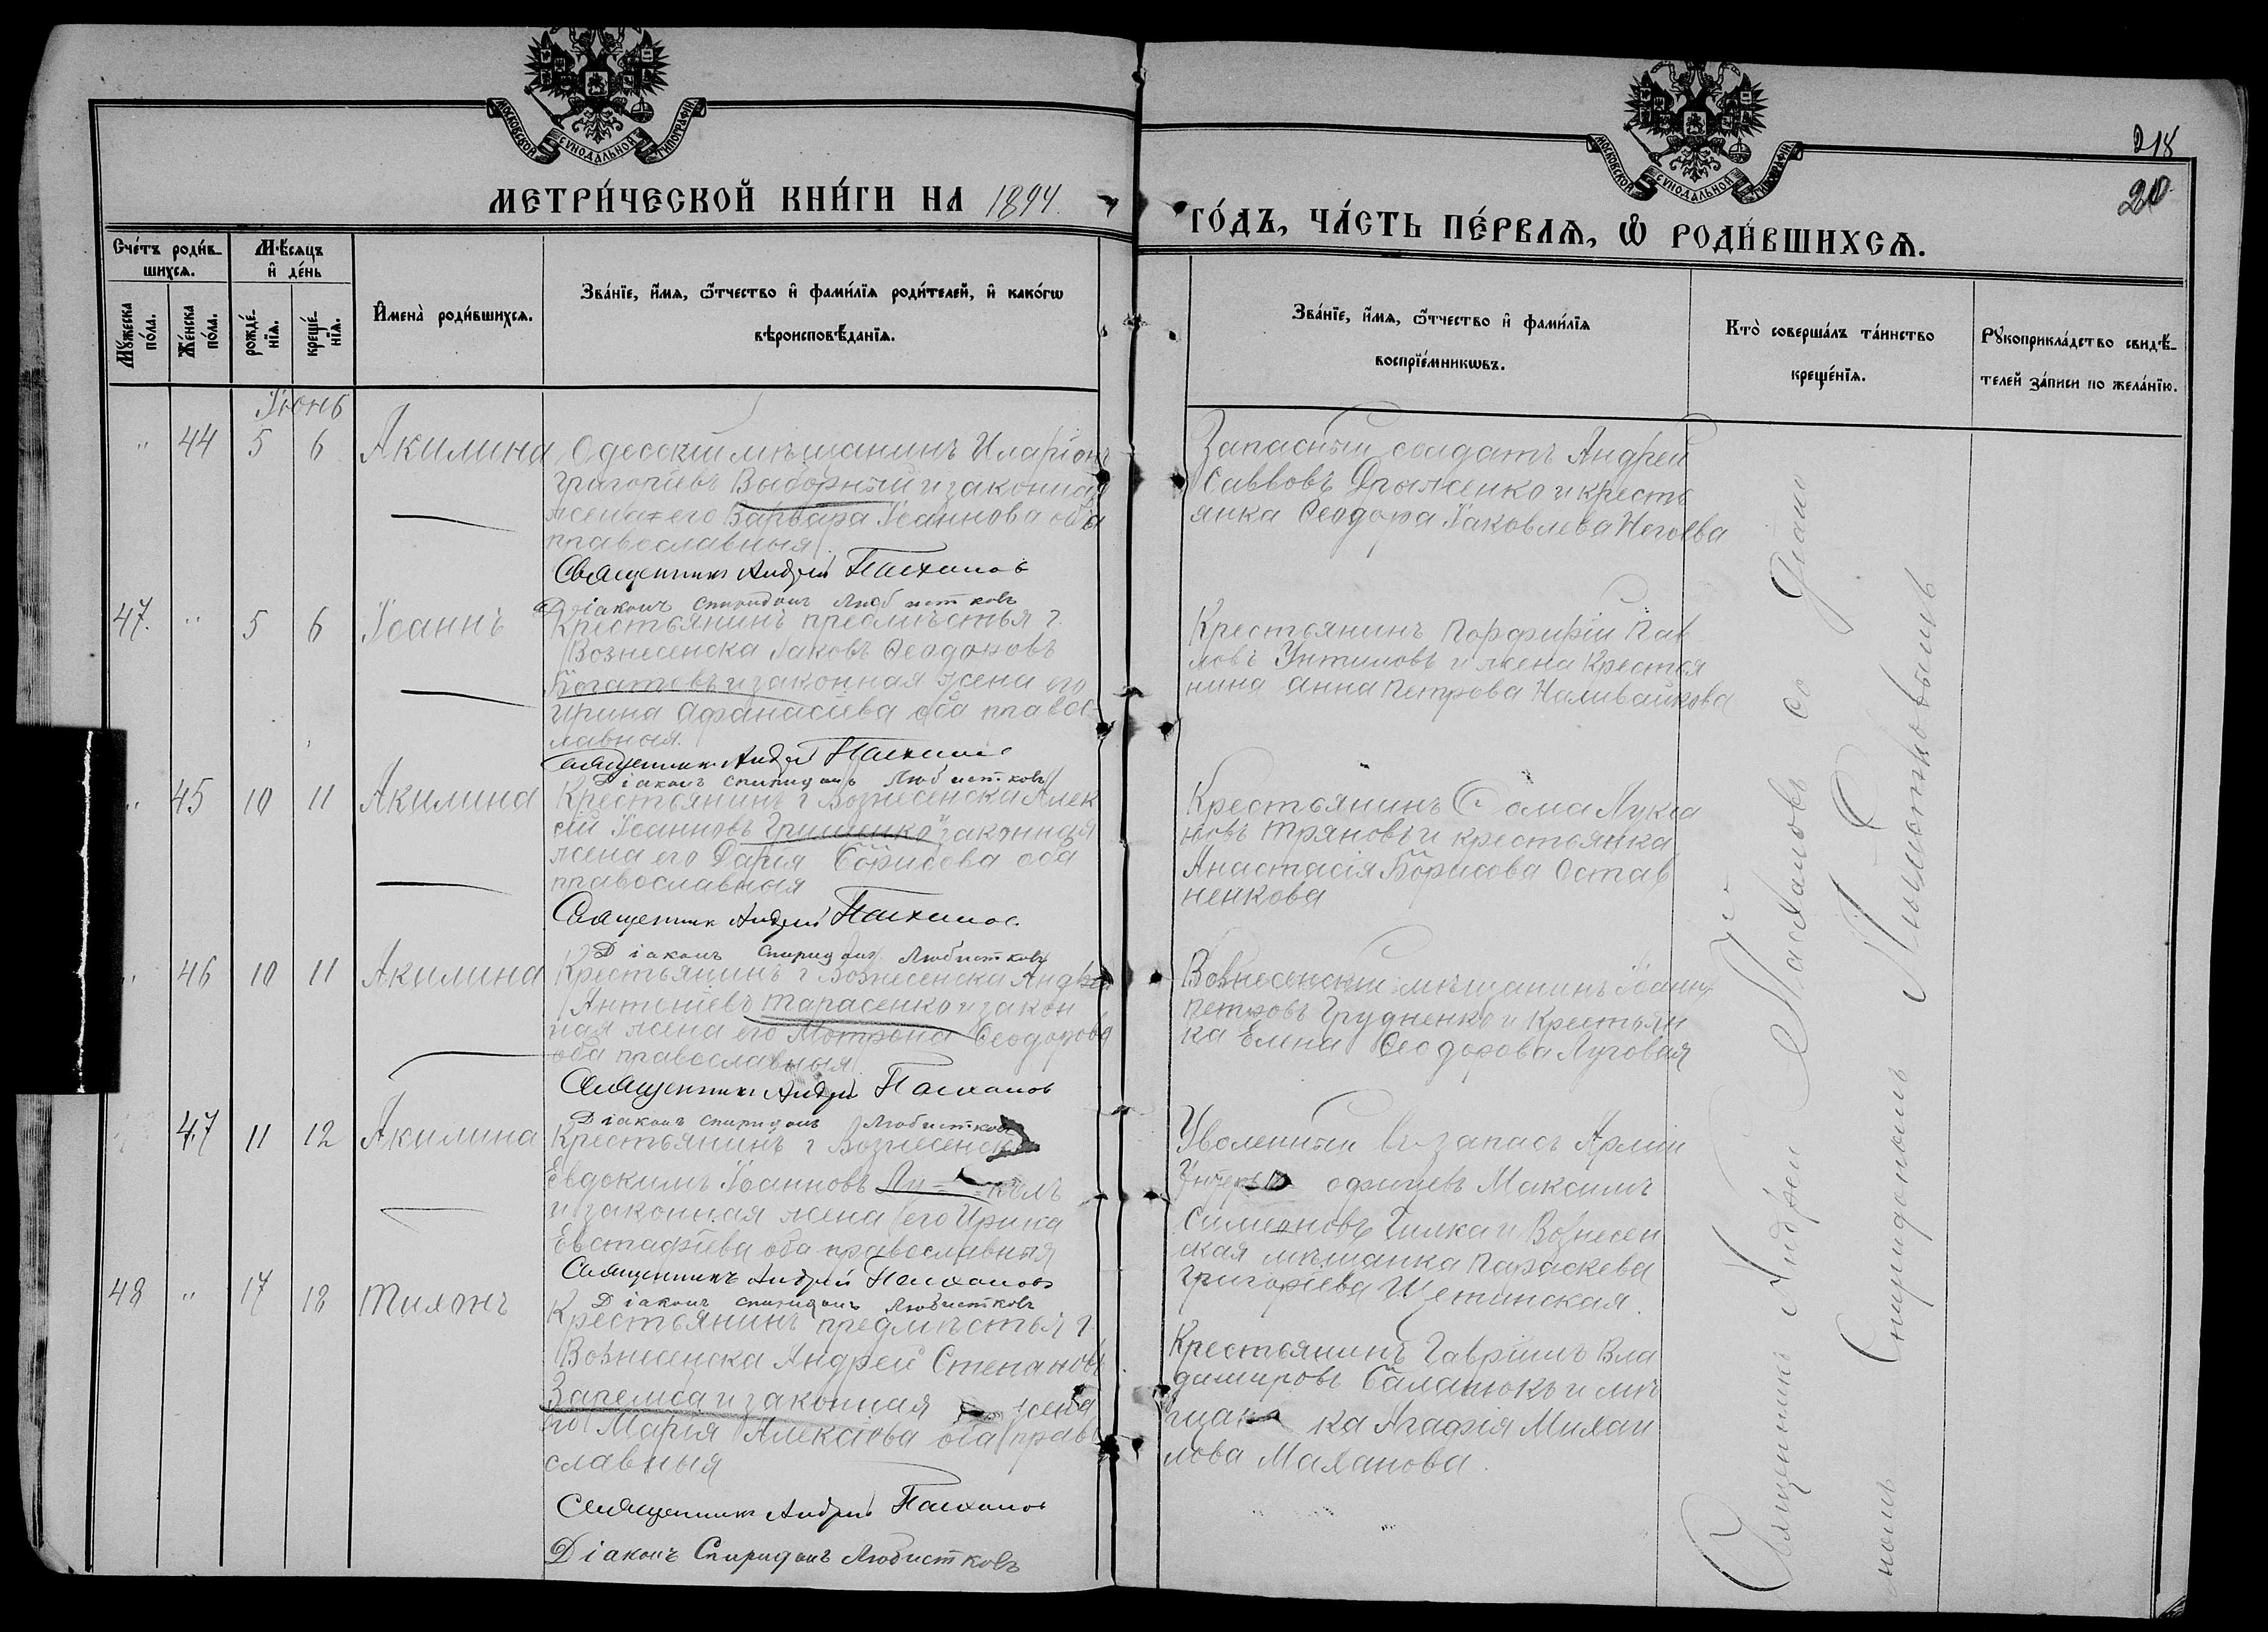 МОСКОВСКОЙ СѴНОДАЛЬНОЙ ТИПОГРАФІИ
МОСКОВСКОЙ СѴНОДАЛЬНОЙ ТИПОГРАФІИ
218
20
МЕТРИ́ЧЕСКОЙ КНИ́ГИ НА 1894.
ГО́ДЪ, ЧА́СТЬ ПЕ́РВАѦ, Ѡ҆ РОДИ́ВШИХСѦ.
Сче́тъ роди́в-
шихсѧ.
Мꙋ́жеска по́ла.
Же́нска по́ла.
Мѣ́сѧцъ
и҆ де́нь
рожде́-
нїѧ.
креще́-
нїѧ.
И҆мена̀ роди́вшихсѧ.
Зва́нїе, и҆́мѧ, ѻ҆́тчество и҆ фами́лїѧ роди́телей, и҆ како́гѡ
вѣроисповѣ́данїѧ.
Зва́нїе, и҆́мѧ, ѻ҆́тчество и҆ фами́лїѧ
воспрїе́мникѡвъ.
Кто̀ соверша́лъ та́инство
креще́нїѧ.
Рꙋкоприкла́дство свидѣ́-
телей за́писи по жела́нїю.
Іюнь
" 44 5 6 Акилина
Одесскій мѣщанинъ Иларіонъ
Григоріевъ Выборный и законная
жена его Варвара Іоаннова оба
православныя
Священникъ Андрей
Діаконъ Спиридонъ Любистковъ
Запасный солдатъ Андрей
Саввовъ и кресть
янка Ѳеодора Іаковлева
47. " 5 6 Іоаннъ
Крестьянинъ предмѣстья г.
Вознесенска Іаковъ Ѳеодоровъ
Богатовъ и законная жена его
Ирина Афанасіева оба правос
лавныя.
Священникъ Андрей
Діаконъ Спиридонъ Любистковъ
Крестьянинъ Порфирій Пав
ловъ и жена Крестья
нина Анна Петрова Наливайкова
" 45 10 11 Акилина
Крестьянинъ г Вознесенска Алек
сій Іоанновъ Гришенко и законная
жена его Дарія Борисова оба
православныя
Священникъ Андрей
Діаконъ Спиридонъ Любистковъ
Крестьянинъ Ѳома Лукіа
новъ и крестьянка
Анастасія Борисова Остав
ненкова
" 46 10 11 Акилина
Крестьянинъ г Вознесенска Андрей
Антоніевъ Тарасенко и закон
ная жена его Мотрона Ѳеодорова
оба православныя
Священникъ Андрей
Діаконъ Спиридонъ Любистковъ
Вознесенскій мѣщанинъ Іоаннъ
Петровъ Грудненко и Крестьян
ка Елена Ѳеодорова Луговая
" 47 11 12 Акилина
Крестьянинъ г Вознесенска
Евдокимъ Іоанновъ
и законная жена его Ирина
Евстафіева оба православныя
Священникъ Андрей
Діаконъ Спиридонъ Любистковъ
Уволенный въ запасъ Арміи
Унтеръ офицеръ Максимъ
Симеоновъ и Вознесен
ская мѣщанка Параскева
Григоріева Щетинская.
48 " 17 18 Тихонъ
Крестьянинъ предмѣстья г.
Вознесенска Андрей Степановъ
и законная жена
его Марія Алексіева оба право
славныя
Священникъ Андрей
Діаконъ Спиридонъ Любистковъ
Крестьянинъ Гавріилъ Вла
димировъ Баланюкъ и мѣ
щан ка Агафія Михаи
лова Маханова.
Священникъ Андрей со Діако
номъ Спиридономъ Любистковымъ